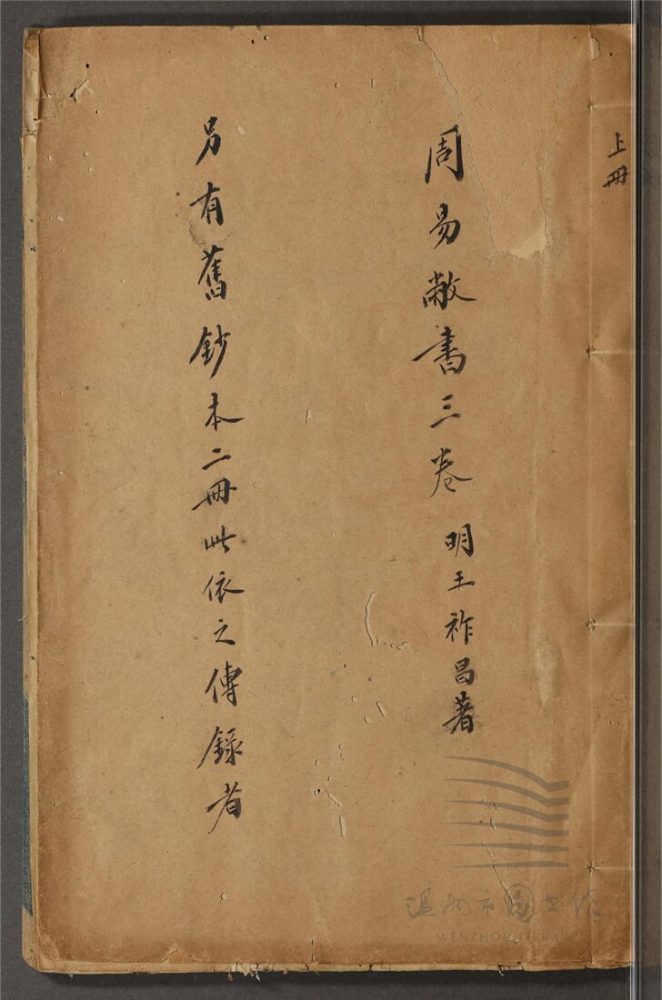 上冊
周易敝書三卷 明王祚昌著
另有舊鈔本二冊此依之傳錄者
温州市图书馆
WENZHOU LIBRARY